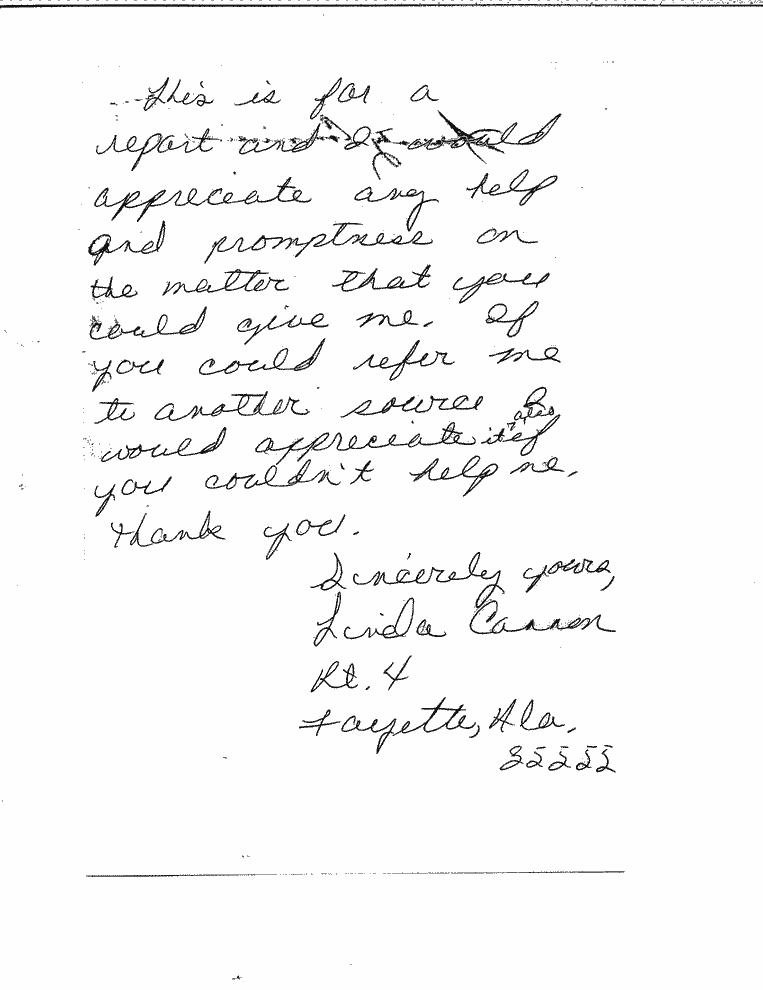 This is for a
report and I would
appreceate any help
and promptness on
the matter that you
could give me. If
you could refer me
to another source I
also
would appreceate it if
you couldn't help me.
Thank you.
Sincerely yours,
Linda Cannon
Rt. 4
Fayette, Ala.
35555